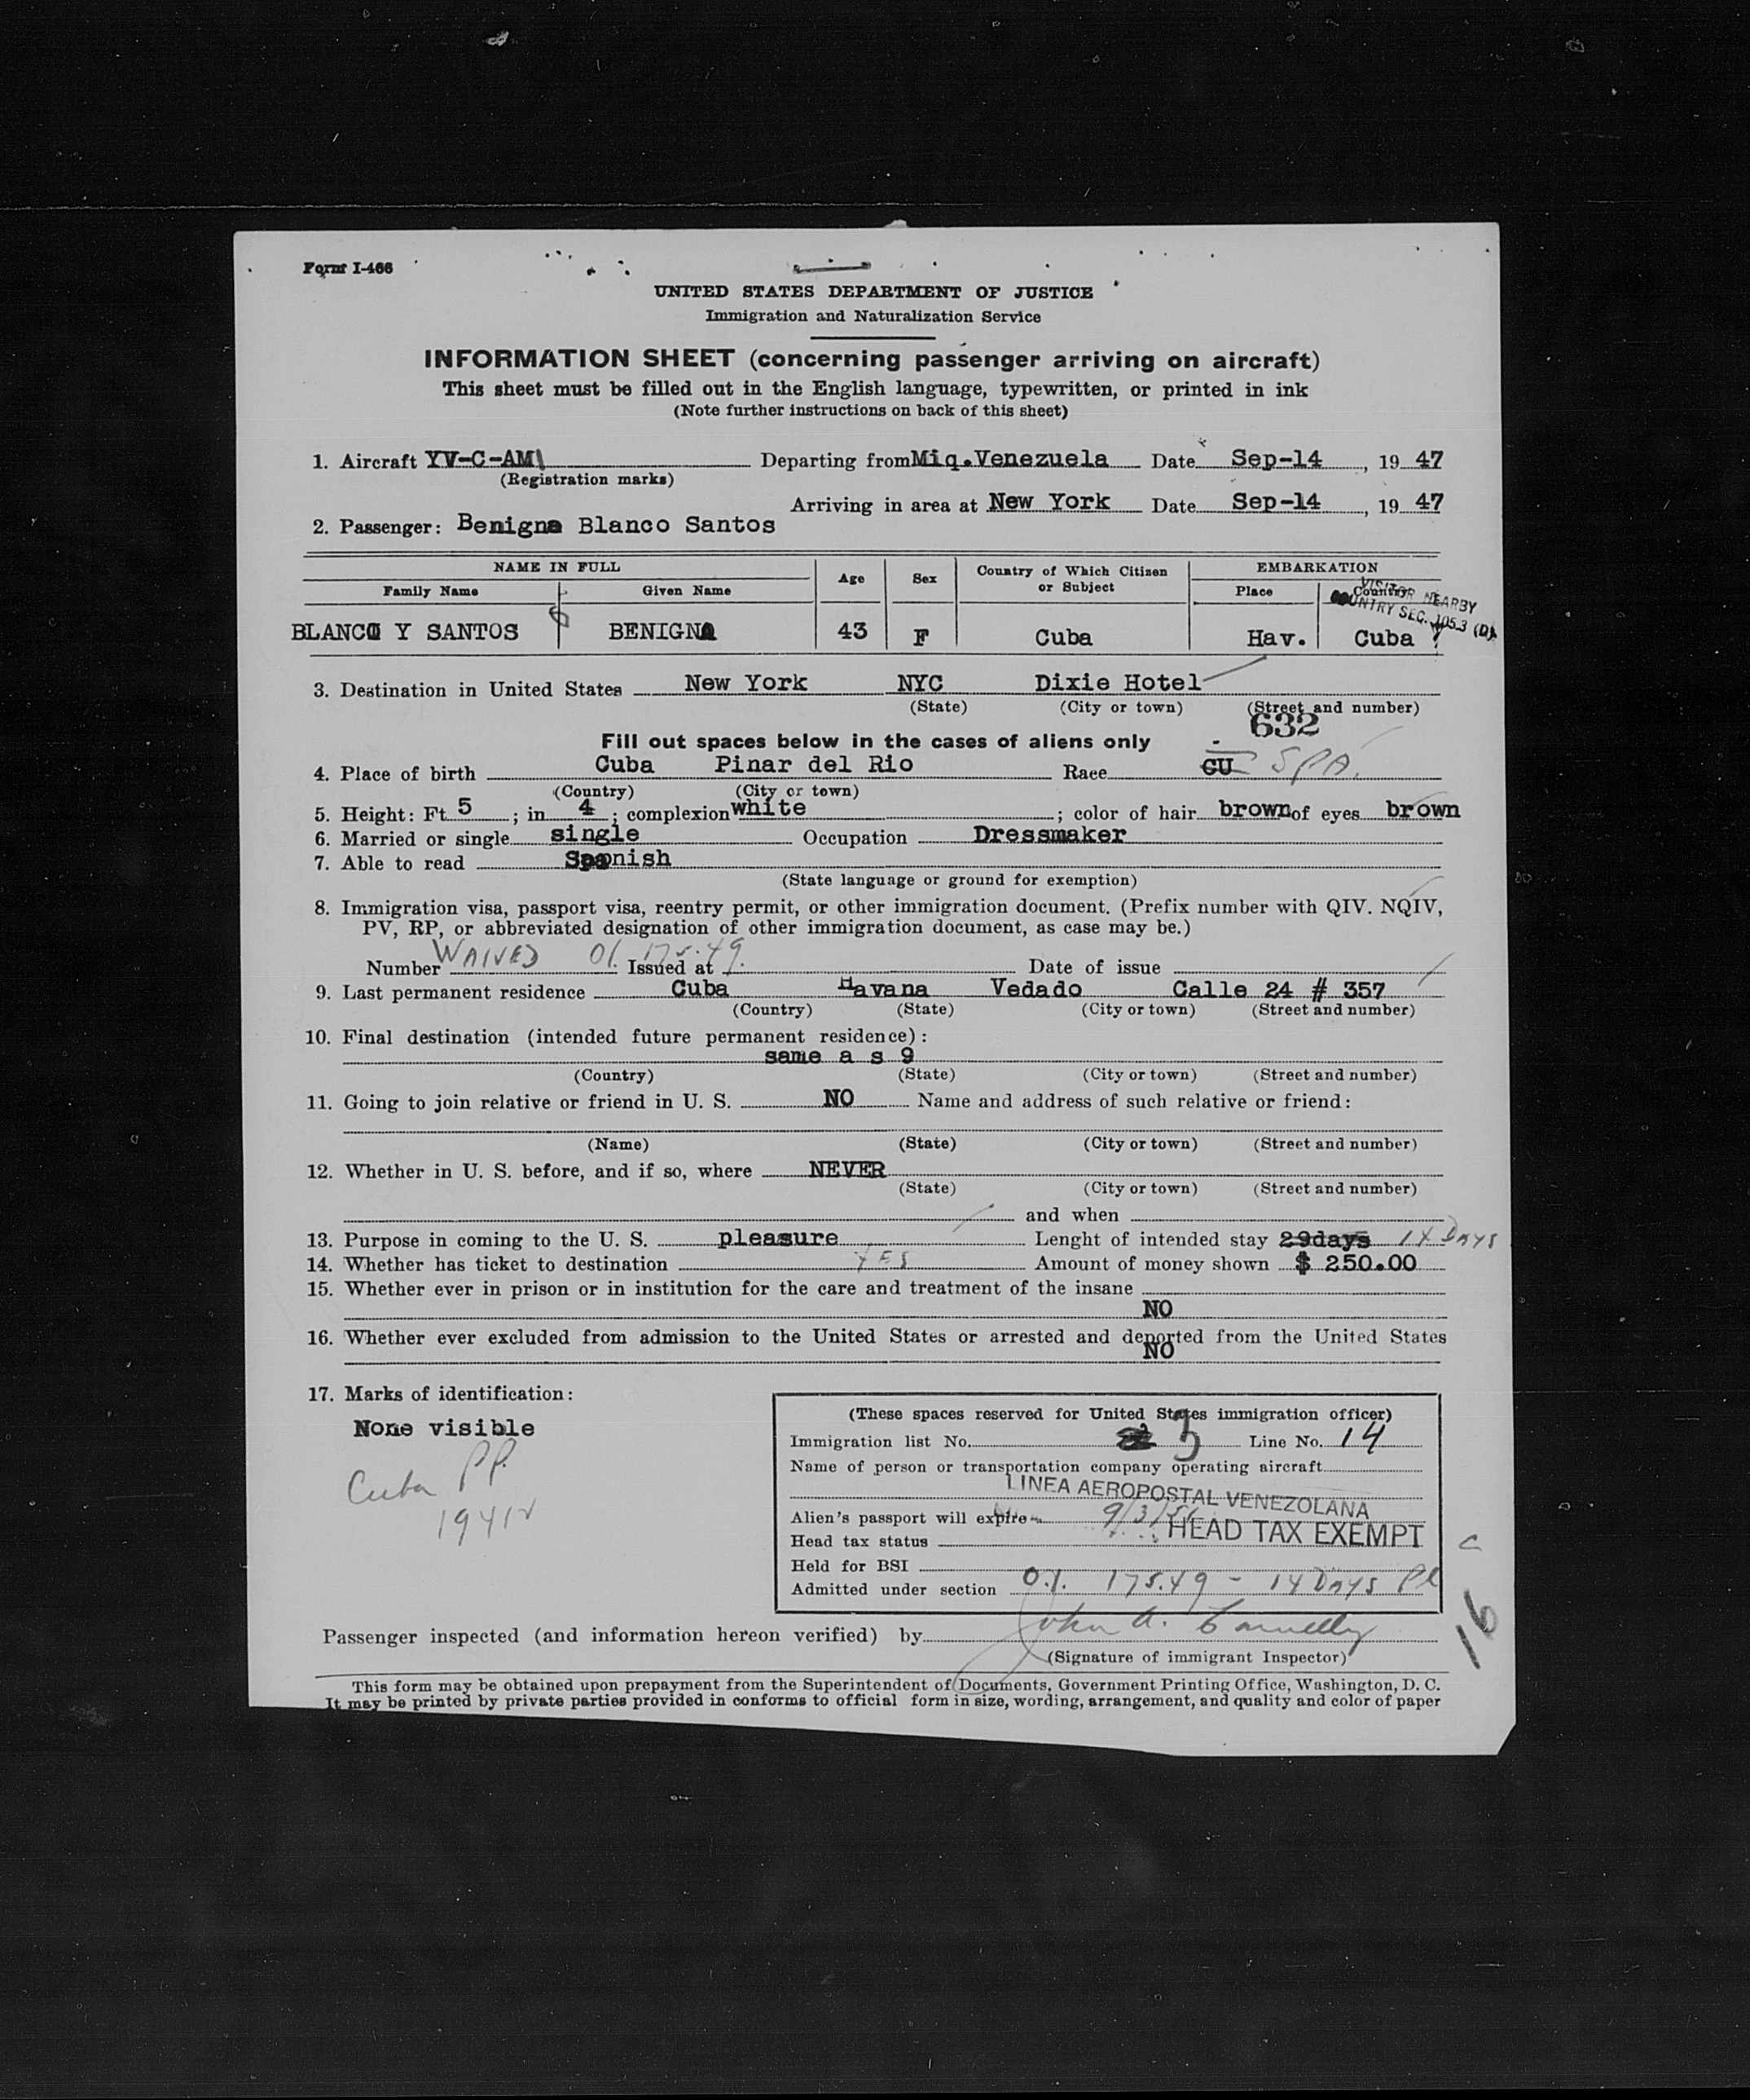 Form I-466
UNITED STATES DEPARTMENT OF JUSTICE
Immigration and Naturalization Service
INFORMATION SHEET (concerning passenger arriving on aircraft)
This sheet must be filled out in the English language, typewritten, or printed in ink
(Note further instructions on back of this sheet)
1. Aircraft YV-C-AM Departing from Miq. Venezuela Date Sep-14, 19 47
(Registration marks)
Arriving in area at New York Date Sep-14, 19 47
2. Passenger: Benigna Blanco Santos
NAME IN FULL Age Sex Country of Which Citizen or Subject EMBARKATION
Family Name Given Name Place Country
VISITOR NEARBY
COUNTRY SEC. 105.3 (D)
BLANCO Y SANTOS BENIGNA 43 F Cuba Hav. Cuba
3. Destination in United States New York NYC Dixie Hotel
(State) (City or town) (Street and number)
632
Fill out spaces below in the cases of aliens only
4. Place of birth Cuba Pinar del Rio Race CU SPA.
(Country) (City or town)
5. Height: Ft. 5 ; in 4 ; complexion white ; color of hair brown of eyes brown
6. Married or single single Occupation Dressmaker
7. Able to read Spanish
(State language or ground for exemption)
8. Immigration visa, passport visa, reentry permit, or other immigration document. (Prefix number with QIV. NQIV,
PV, RP, or abbreviated designation of other immigration document, as case may be.)
Number WAIVED O.I. 175.49. Issued at Date of issue
9. Last permanent residence Cuba Havana Vedado Calle 24 # 357
(Country) (State) (City or town) (Street and number)
10. Final destination (intended future permanent residence):
same a s 9
(Country) (State) (City or town) (Street and number)
11. Going to join relative or friend in U. S. NO Name and address of such relative or friend:
(Name) (State) (City or town) (Street and number)
12. Whether in U. S. before, and if so, where NEVER
(State) (City or town) (Street and number)
and when
13. Purpose in coming to the U. S. pleasure Lenght of intended stay 29days 14 Days
14. Whether has ticket to destination YES Amount of money shown $ 250.00
15. Whether ever in prison or in institution for the care and treatment of the insane
NO
16. Whether ever excluded from admission to the United States or arrested and deported from the United States
NO
17. Marks of identification:
None visible
Cuba PP.
(These spaces reserved for United States immigration officer)
Immigration list No. 3 Line No. 14
Name of person or transportation company operating aircraft
LINEA AEROPOSTAL VENEZOLANA
Alien's passport will expire 9/3/51
Head tax status HEAD TAX EXEMPT
Held for BSI
Admitted under section O.I. 175.49 - 14 Days Pl
16
Passenger inspected (and information hereon verified) by John A.
(Signature of immigrant Inspector)
This form may be obtained upon prepayment from the Superintendent of Documents, Government Printing Office, Washington, D. C.
It may be printed by private parties provided in conforms to official form in size, wording, arrangement, and quality and color of paper